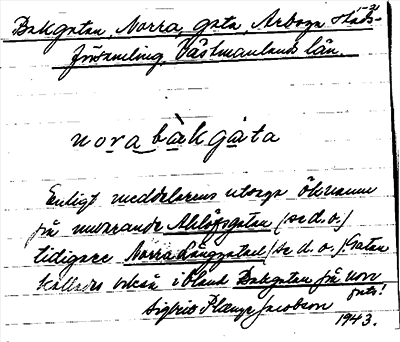 Bakgatan, Norra, gata, Arboga stads-
församling, Västmanlands län.
nora bakgata
Enligt meddelarens utsago öknamn
på nuvarande Ahllöfsgatan (se d.o.)
tidigare Norra Långgatan (se d.o.) Gatan
kallades också ibland Bakgatan på norr
Sigbrit Plænge Jacobson
1943.